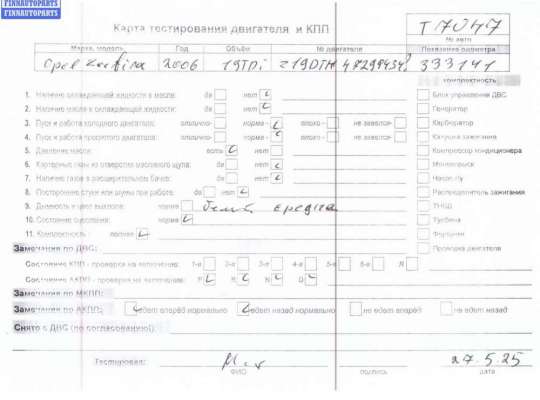 FINNAUTOPARTS
FINNAUTOPARTS
Карта тестирования двигателя и КПП
T7047
№ авто
Марка, модель Год Объём № двигателя Показание одометра
Opel Zafira 2006 1.9TDi Z19DTH 333141
комплектность
1. Наличие охлаждающей жидкости в масле: да нет Блок управления ДВС
2. Наличие масла в охлаждающей жидкости: да нет Генератор
3. Пуск и работа холодного двигателя: отлично- норма- плохо- не завелся- Карбюратор
4. Пуск и работа прогретого двигателя: отлично- норма- плохо- не завелся- Катушка зажигания
5. Давление масла: есть нет Компрессор кондиционера
6. Картерные газы из отверстия масляного щупа: да нет
7. Наличие газов в расширительном бачке: да нет
8. Посторонние стуки или шумы при работе: да нет Распределитель зажигания
9. Дымность и цвет выхлопа: средняя ТНВД
10. Состояние норма Турбина
11. Комплектность: полная
Проводка двигателя
Замечания по ДВС:
Состояние КПП - проверка на включение: 1-я 2-я 3-я 4-я 5-я 6-я R
Состояние АКПП - проверка на включение: P R N D
Замечания по МКПП:
Замечания по АКПП: едет вперёд нормально едет назад нормально не едет вперёд не едет назад
Снято с ДВС (по согласованию):
Тестировал: 27.5.25
ФИО подпись дата